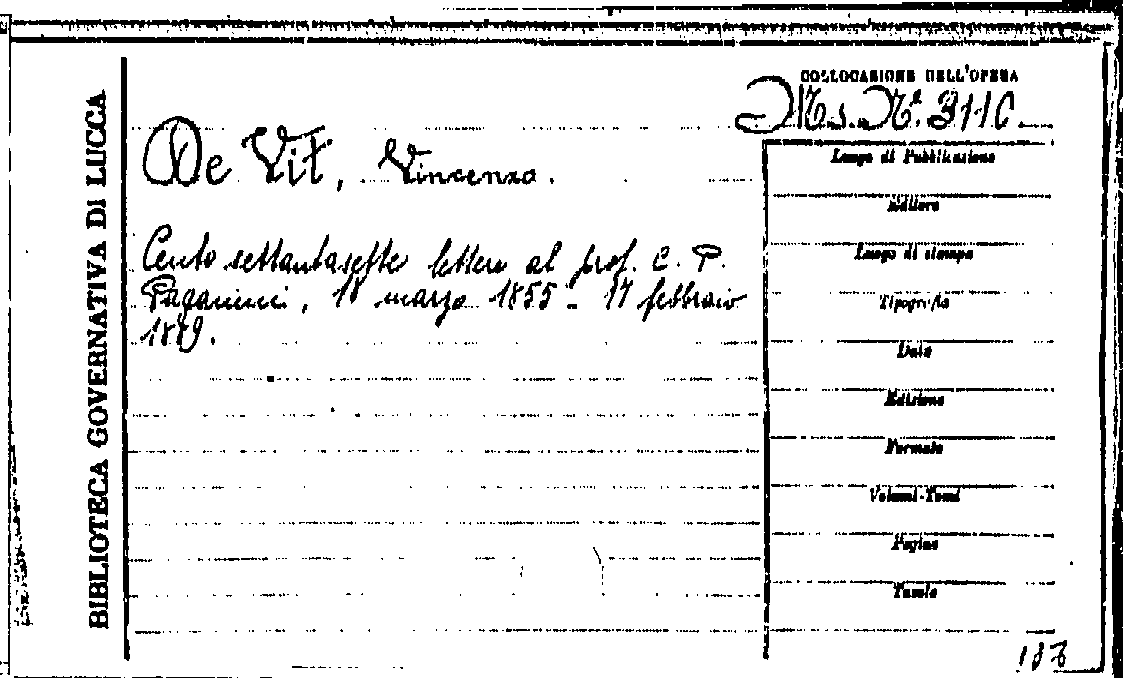 BIBLIOTECA GOVERNATIVA DI LUCCA
COLLOCAZIONE DELL'OPERA
Ms. N.º 3110
De Vit, Vincenzo.
Cento settantasette lettere al prof. C. P.
Paganini, 18 marzo 1855 - 17 febbraio
1889.
Luogo di Pubblicazione
Editore
Luogo di stampa
Tipografia
Data
Edizione
Formato
Volumi-Tomi
Pagine
Tavole